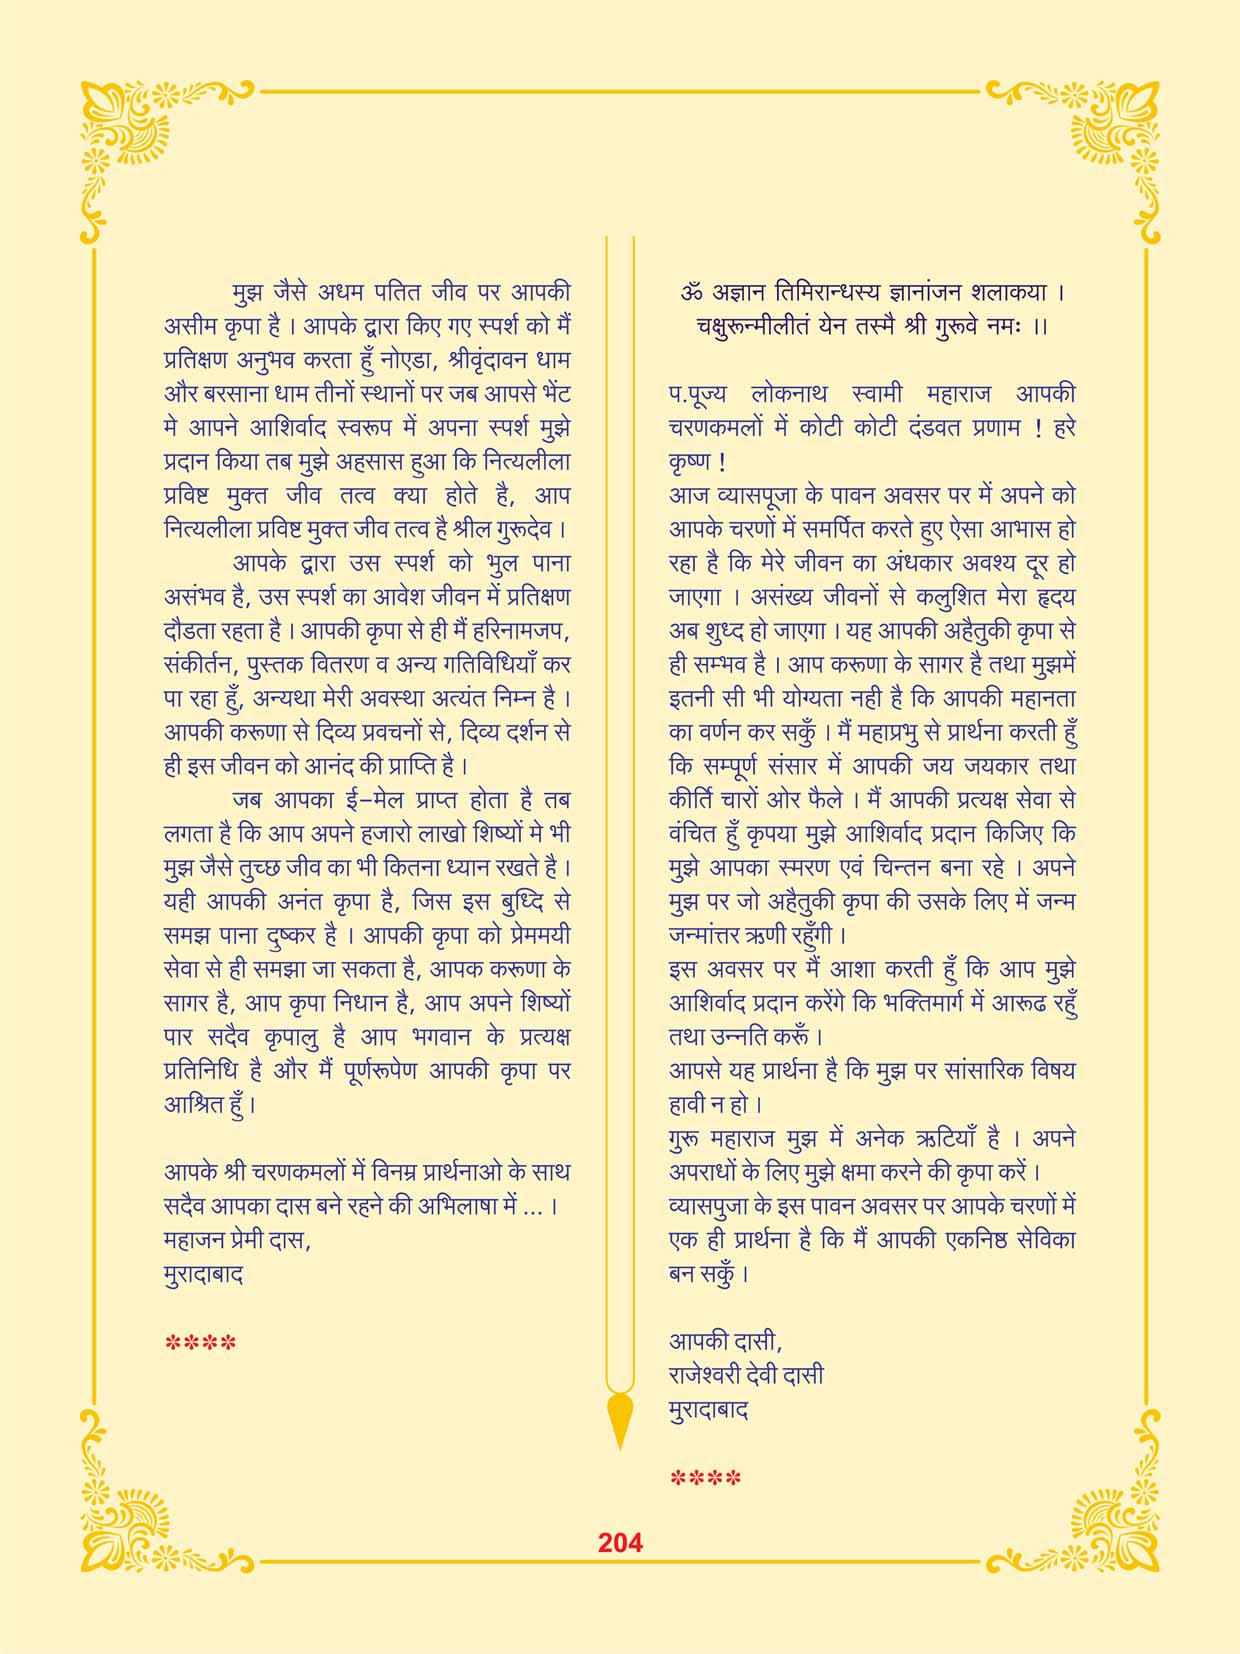 मुझ जैसे अधम पतित जीव पर आपकी
असीम कृपा है । आपके द्वारा किए गए स्पर्श को मैं
प्रतिक्षण अनुभव करता हुँ नोएडा, श्रीवृंदावन धाम
और बरसाना धाम तीनों स्थानों पर जब आपसे भेंट
मे आपने आशिर्वाद स्वरूप में अपना स्पर्श मुझे
प्रदान किया तब मुझे अहसास हुआ कि नित्यलीला
प्रविष्ट मुक्त जीव तत्व क्या होते है, आप
नित्यलीला प्रविष्ट मुक्त जीव तत्व है श्रील गुरूदेव ।
आपके द्वारा उस स्पर्श को भुल पाना
असंभव है, उस स्पर्श का आवेश जीवन में प्रतिक्षण
दौडता रहता है । आपकी कृपा से ही मैं हरिनामजप,
संकीर्तन, पुस्तक वितरण व अन्य गतिविधियाँ कर
पा रहा हुँ, अन्यथा मेरी अवस्था अत्यंत निम्न है ।
आपकी करूणा से दिव्य प्रवचनों से, दिव्य दर्शन से
ही इस जीवन को आनंद की प्राप्ति है ।
जब आपका ई-मेल प्राप्त होता है तब
लगता है कि आप अपने हजारो लाखो शिष्यों मे भी
मुझ जैसे तुच्छ जीव का भी कितना ध्यान रखते है ।
यही आपकी अनंत कृपा है, जिस इस बुध्दि से
समझ पाना दुष्कर है । आपकी कृपा को प्रेममयी
सेवा से ही समझा जा सकता है, आपक करूणा के
सागर है, आप कृपा निधान है, आप अपने शिष्यों
पार सदैव कृपालु है आप भगवान के प्रत्यक्ष
प्रतिनिधि है और मैं पूर्णरूपेण आपकी कृपा पर
आश्रित हुँ ।
आपके श्री चरणकमलों में विनम्र प्रार्थनाओ के साथ
सदैव आपका दास बने रहने की अभिलाषा में ... ।
महाजन प्रेमी दास,
मुरादाबाद
****
ॐ अज्ञान तिमिरान्धस्य ज्ञानांजन शलाकया ।
चक्षुरून्मीलीतं येन तस्मै श्री गुरूवे नमः ।।
प.पूज्य लोकनाथ स्वामी महाराज आपकी
चरणकमलों में कोटी कोटी दंडवत प्रणाम ! हरे
कृष्ण !
आज व्यासपूजा के पावन अवसर पर में अपने को
आपके चरणों में समर्पित करते हुए ऐसा आभास हो
रहा है कि मेरे जीवन का अंधकार अवश्य दूर हो
जाएगा । असंख्य जीवनों से कलुशित मेरा हृदय
अब शुध्द हो जाएगा । यह आपकी अहैतुकी कृपा से
ही सम्भव है । आप करूणा के सागर है तथा मुझमें
इतनी सी भी योग्यता नही है कि आपकी महानता
का वर्णन कर सकुँ । मैं महाप्रभु से प्रार्थना करती हुँ
कि सम्पूर्ण संसार में आपकी जय जयकार तथा
कीर्ति चारों ओर फैले । मैं आपकी प्रत्यक्ष सेवा से
वंचित हुँ कृपया मुझे आशिर्वाद प्रदान किजिए कि
मुझे आपका स्मरण एवं चिन्तन बना रहे । अपने
मुझ पर जो अहैतुकी कृपा की उसके लिए में जन्म
जन्मांत्तर ऋणी रहुँगी ।
इस अवसर पर मैं आशा करती हुँ कि आप मुझे
आशिर्वाद प्रदान करेंगे कि भक्तिमार्ग में आरूढ रहुँ
तथा उन्नति करूँ ।
आपसे यह प्रार्थना है कि मुझ पर सांसारिक विषय
हावी न हो ।
गुरू महाराज मुझ में अनेक ऋटियाँ है । अपने
अपराधों के लिए मुझे क्षमा करने की कृपा करें ।
व्यासपुजा के इस पावन अवसर पर आपके चरणों में
एक ही प्रार्थना है कि मैं आपकी एकनिष्ठ सेविका
बन सकुँ ।
आपकी दासी,
राजेश्वरी देवी दासी
मुरादाबाद
****
204